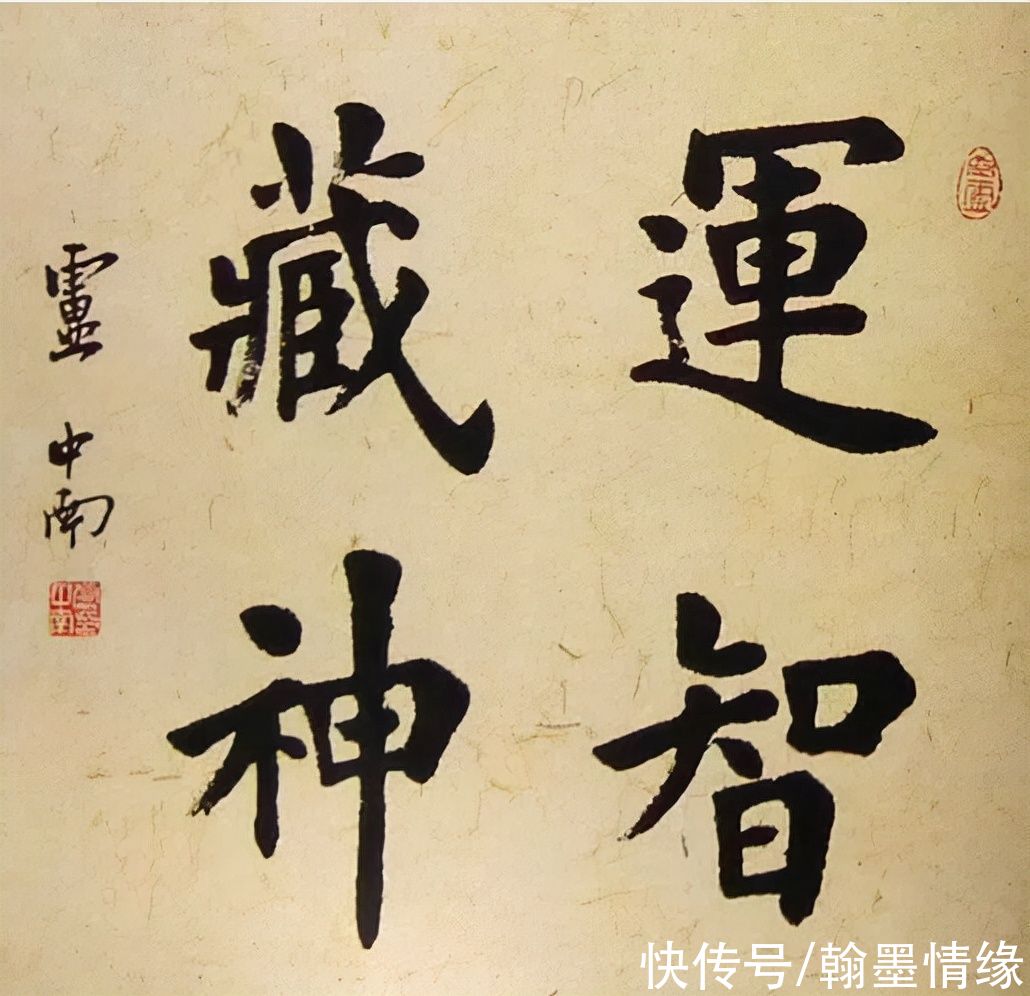 運智
藏神
盧中南
快传号/翰墨情缘